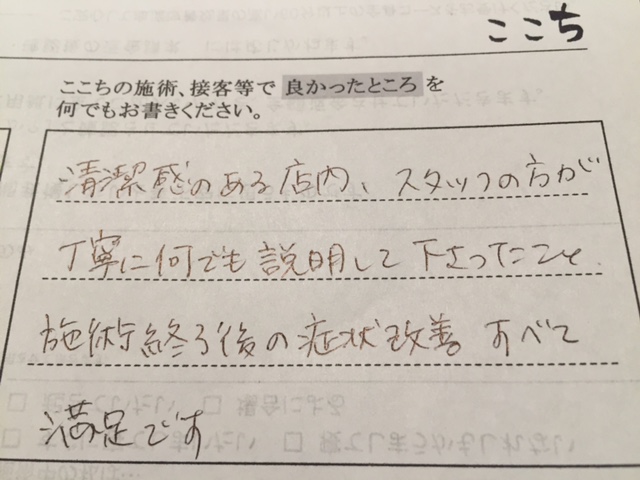 ここち
ここちの施術、接客等で 良かったところ を
何でもお書きください。
清潔感のある店内、スタッフの方が
丁寧に何でも説明して下さったこと、
施術終了後の症状改善 すべて
満足です